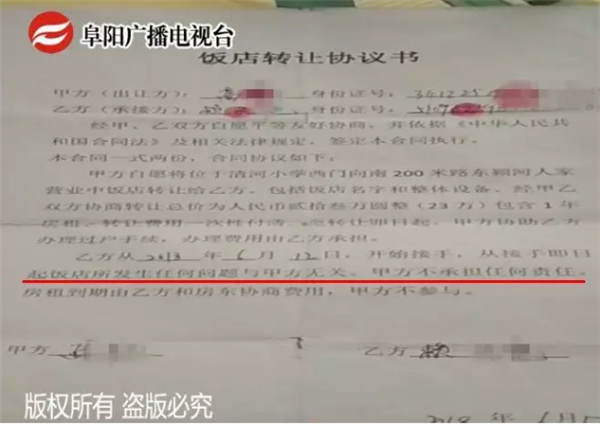 阜阳广播电视台
饭店转让协议书
甲方(出让方): 身份证号: 341225
乙方(承接方): 身份证号:
经甲、乙双方自愿平等友好协商,并依据《中华人民共
和国合同法》及相关法律规定,签定本合同执行。
本合同一式两份,合同协议如下:
甲方自愿将位于清河小学西门向南200米路东颍河人家
营业中饭店转让给乙方。包括饭店名字和整体设备。经甲乙
双方协商转让总价为人民币贰拾叁万圆整(23万)包含1年
房租、转让费用一次性付清 转让即日起,甲方协助乙方
办理过户手续,办理费用由乙方承担。
乙方从2018年6月12日,开始接手,从接手即日
起饭店所发生任何问题与甲方无关。甲方不承担任何责任。
房租到期由乙方和房东协商费用,甲方不参与。
甲方 乙方
2018年6月
版权所有 盗版必究